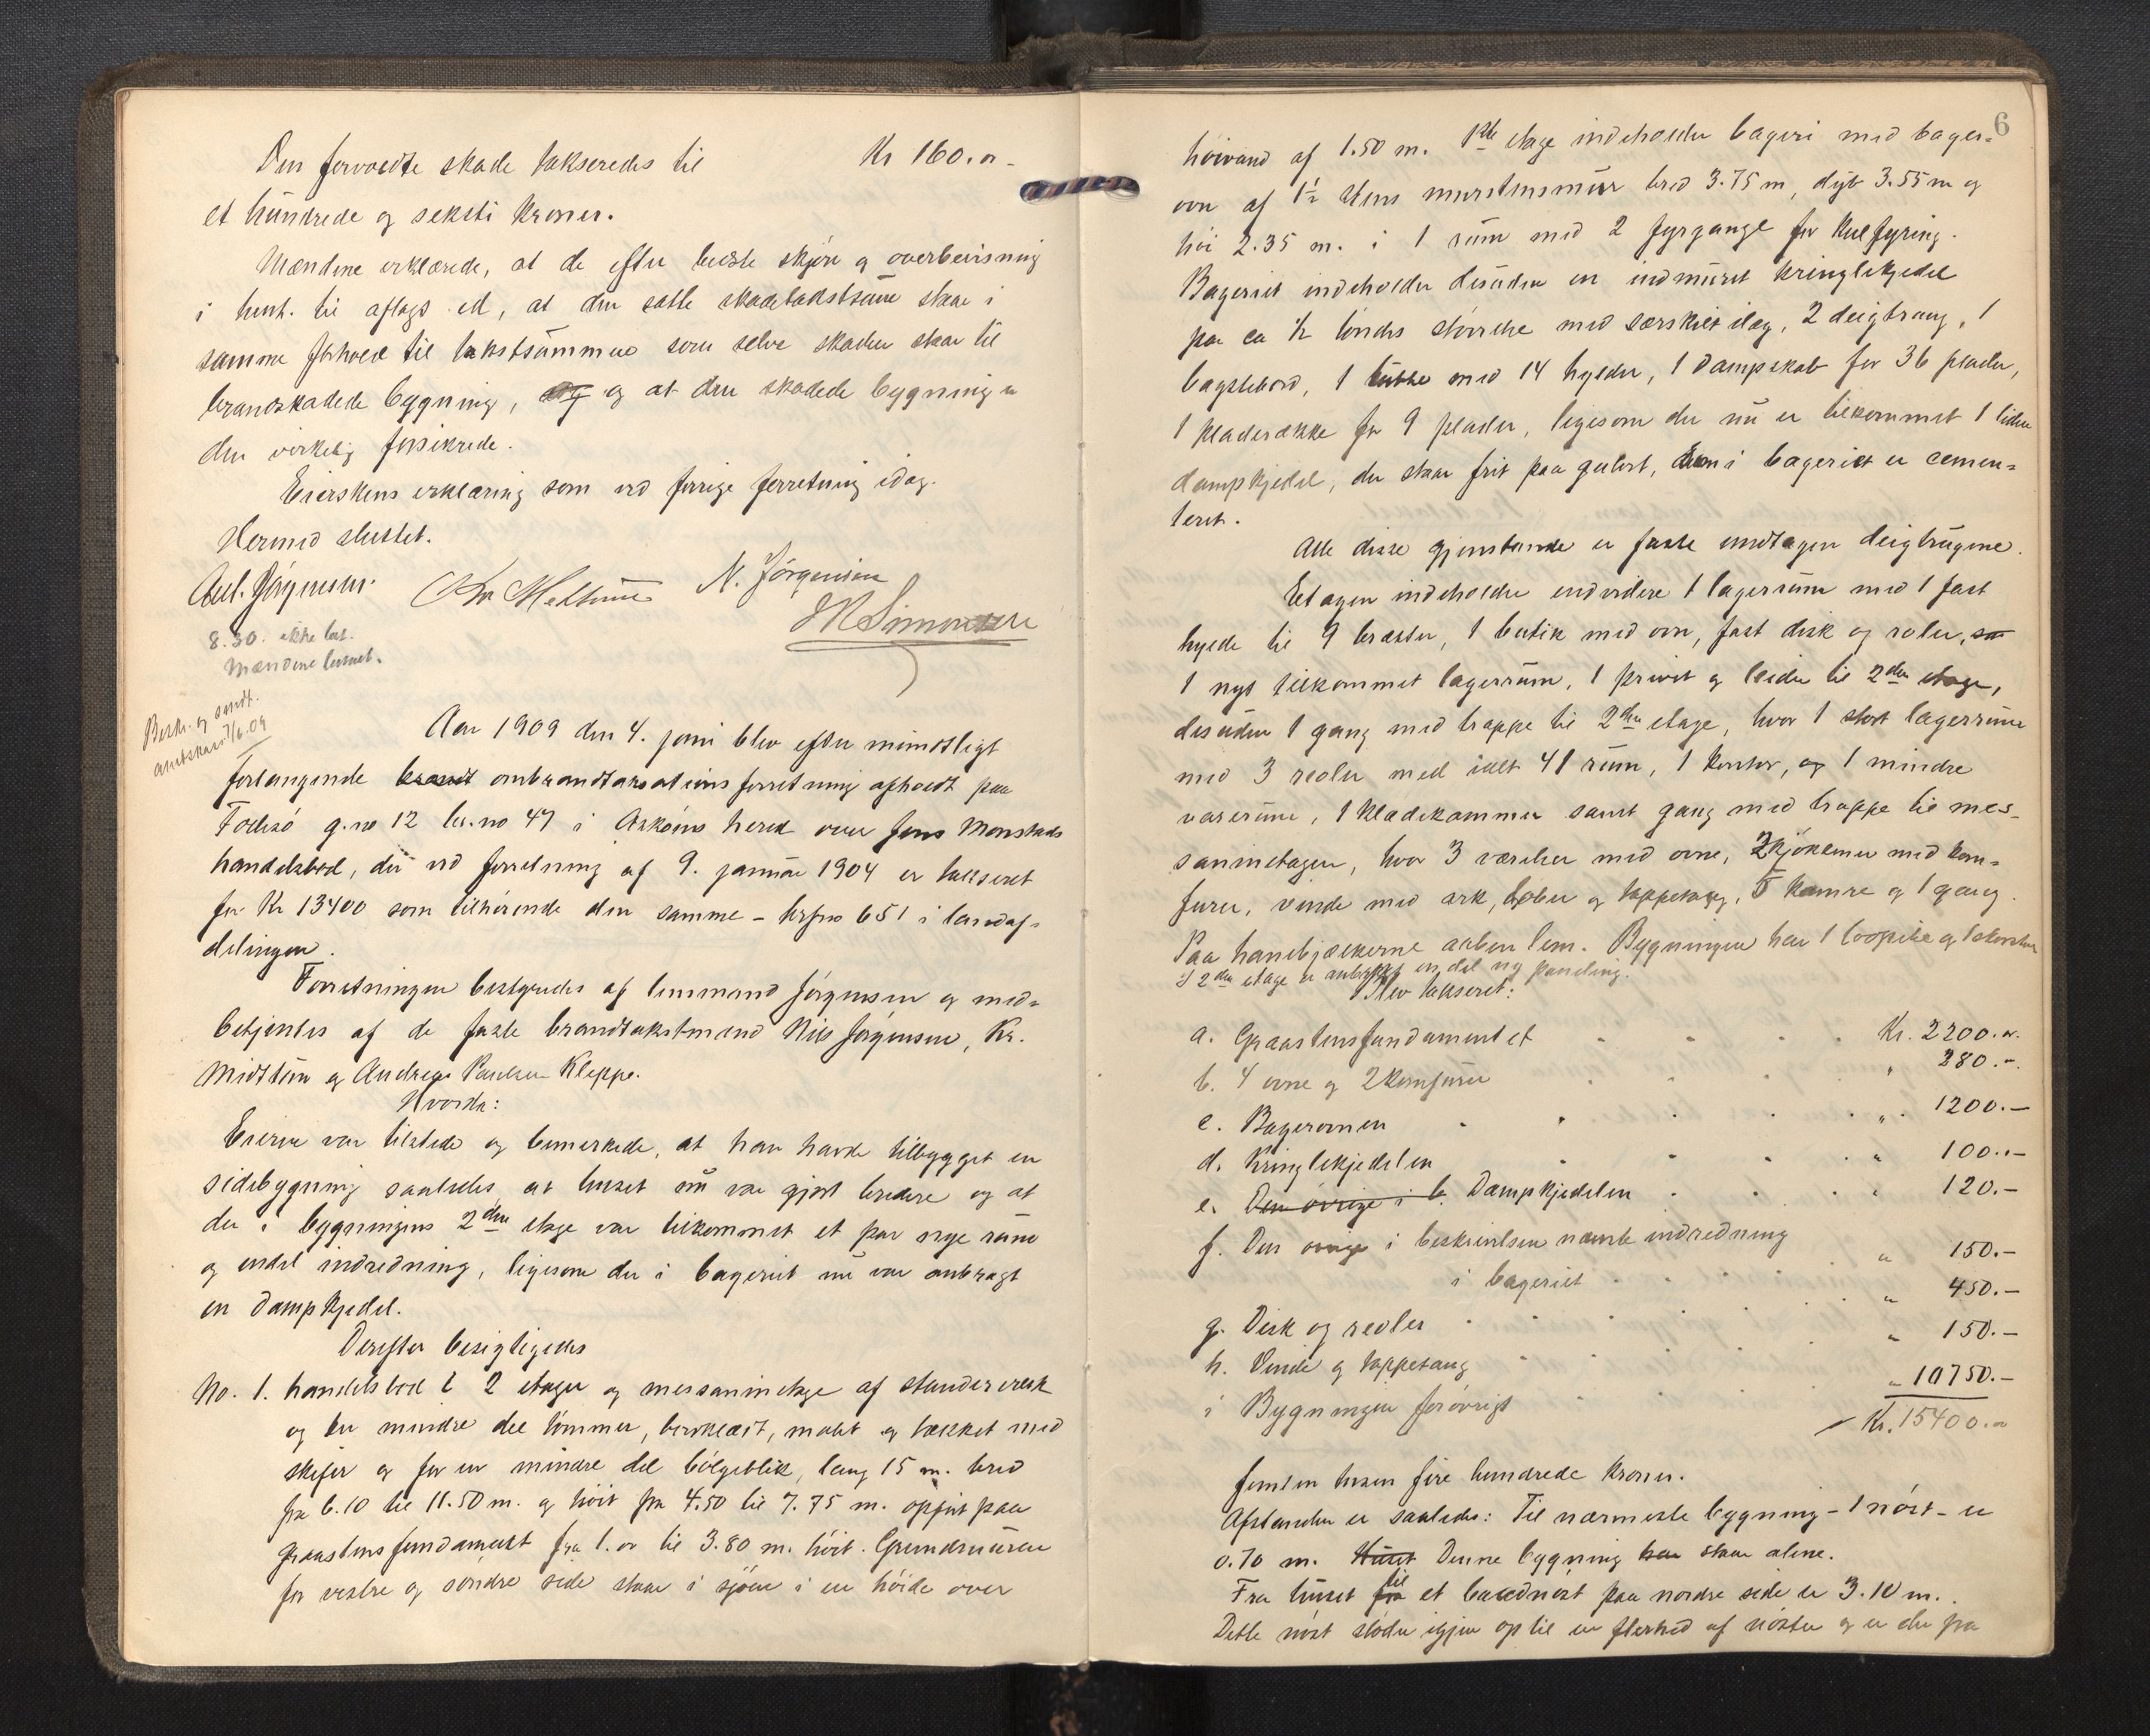 Den forvoldte skade takseredes til Kr 160.00
et hundrede og seksti kroner.
Mændene erklærede, at de efter bedste skjøn og overbevisning
i henh. til aflagt ed, at den satte skadetakstsum staar i
samme forhold til takstsummen som selve skaden staar til
brandskadede bygning, og at den skadede bygning er
den virkelig forsikrede.
Eierskens erklæring som ved forrige forretning idag.
Hermed sluttet.
Aul. Jörgensen. N. Jörgensen
J K Simonsen
8.30. ikke bet.
Mændene lønnet.
Beskr. og sendt.
amtskass 7/6.09
Aar 1909 den 4. juni blev efter mundtligt
forlangende brandt ombrandtaxationsforretning afholdt paa
Follesö g.no 12 br.no 47 i Asköens herred over Jens Monstads
handelsbod, der ved forretning af 9. januar 1904 er takseret
for Kr 13400 som tilhörende den samme - brfno 651 i landaf-
delingen.
Forretningen bestyredes af lensmand Jörgensen og med-
betjentes af de faste brandtakstmænd Nils Jörgensen, Kr.
Midttun og Andreas Paulsen Kleppe.
Hvorda:
Eieren var tilstede og bemerkede, at han havde tilbygget en
sidebygning saaledes at huset nu var gjort bredere og at
der i bygningens 2den etage var tilkommet et par nye rum
og endel indredning, ligesom der i bageriet nu var anbragt
en dampkjedel.
Derefter besigtigedes
No. 1. handelsbod i 2 etager og messaninetage af standerverk
og en mindre del tömmer, bordklædt, malet og tækket med
skifer og for en mindre del bölgeblik, lang 15 m. bred
fra 6.10 til 11.50 m. og höit fra 4.50 til 7.75 m. opfört paa
graastensfundament fra 1.00 til 3.80 m. höit. Grundmuren
for vestre og söndre side staar i sjöen i en höide over
6
höivand af 1.50 m. 1ste etage indeholder bageri med bager-
ovn af 1½ stens murstensmur bred 3.75 m, dyb 3.55 m og
höi 2.35 m. i 1 rum med 2 fyrgange for kulfyring.
Bageriet indeholder desuden en indmuret kringlekjedel
paa ca ½ töndes störrelse med særskilt ilæg, 2 deigtraug, 1
bagstebord, 1 med 14 hylder, 1 dampskab for 36 plader,
1 pladerække for 9 plader, ligesom der nu er tilkommet 1 liden
dampkjedel, der staar frit paa gulvet, i bageriet er cemen-
teret.
Alle disse gjenstande er faste undtagen deigtrugene.
Etagen indeholder endvidere 1 lagerrum med 1 fast
hylde til 9 , 1 butik med ovn, fast disk og reoler,
1 nyt tilkommet lagerrum, 1 privet og leider til 2den etage,
desuden 1 gang med trappe til 2den etage, hvor 1 stort lagerrum
med 3 reoler med ialt 41 rum, 1 kontor, og 1 mindre
varerum, 1 klædekammer samt gang med trappe til mes-
saninetagen, hvor 3 værelser med ovne, 2 kjökkener med kom-
furer, vinde med ark, og tappetoug, 5 kamre og 1 gang.
Paa hanebjælkerne aaben lem. Bygningen har 1 og 1 skorsten
I 2den etage er anbragt en del ny paneling.
Blev takseret:
a. Graastensfundamentet Kr. 2200.00
b. 4 ovne og 2 komfurer " 280.-
c. Bagerovnen " 1200.-
d. Kringlekjedelen " 100.-
e. Den övrige i b Dampkjedelen " 120.-
f. Den övrige i beskrivelsen nævnte indredning
i bageriet " 150.-
g. Disk og reoler " 450.-
h. Vinde og tappetaug " 150.-
i Bygningen forövrigt " 10750.-
Kr. 15400.00
femten tusen fire hundrede kroner.
Afstanden er saaledes: Til nærmeste bygning - 1 nöst - er
0.70 m. Huset Denne bygning har staar alene.
Fra huset fra til et baadnöst paa nordre side er 3.10 m.
Dette nöst stöder igjen op til en flerhed af nöster og er der fra